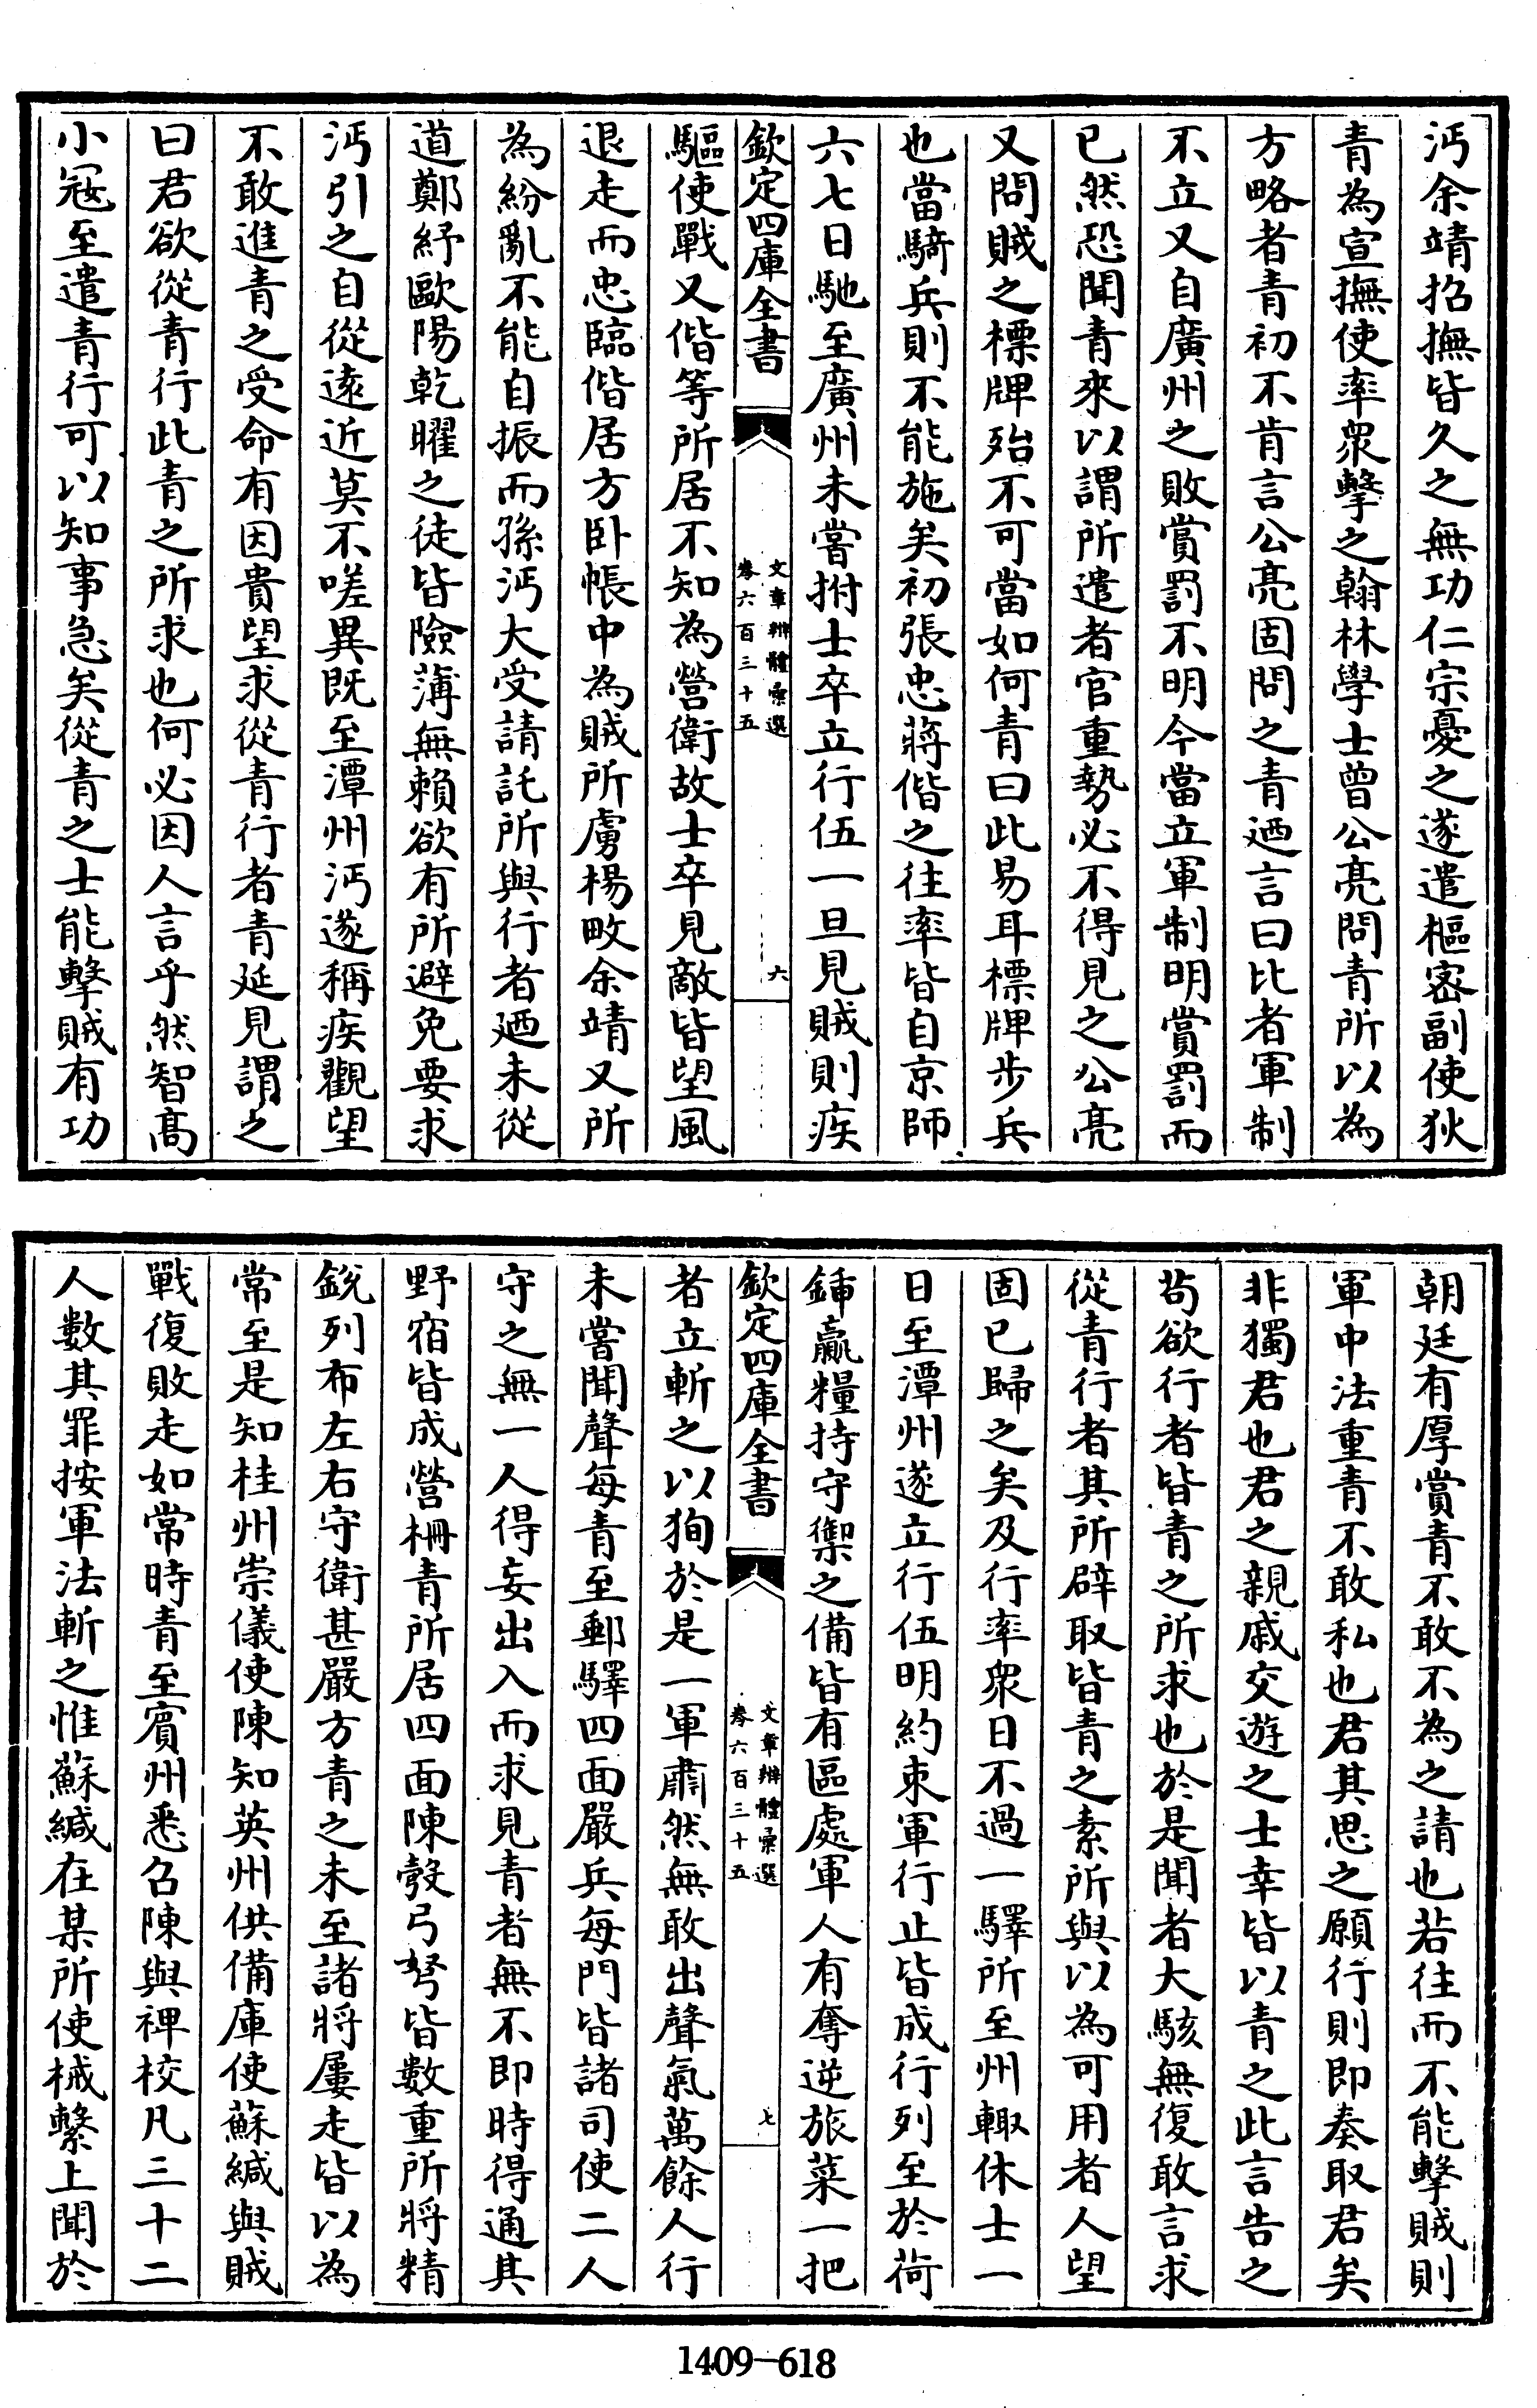 沔余靖招撫皆久之無功仁宗憂之遂遣樞密副使狄
青為宣撫使率衆擊之翰林學士曾公亮問青所以為
方略者青初不肯言公亮固問之青迺言曰比者軍制
不立又自廣州之敗賞罰不明今當立軍制明賞罰而
已然恐聞青來以謂所遣者官重勢必不得見之公亮
又問賊之標牌殆不可當如何青曰此易耳標牌步兵
也當騎兵則不能施矣初張忠蔣偕之往率皆自京師
六七日馳至廣州未嘗拊士卒立行伍一旦見賊則疾
欽定四庫全書
文章辨體彙選
卷六百三十五
六
驅使戰又偕等所居不知為營衛故士卒見敵皆望風
退走而忠臨偕居方卧帳中為賊所虜楊畋余靖又所
為紛亂不能自振而孫沔大受請託所與行者廼未從
道鄭紓歐陽乾曜之徒皆險薄無賴欲有所避免要求
沔引之自從遠近莫不嗟異既至潭州沔遂稱疾觀望
不敢進青之受命有因貴望求從青行者青延見謂之
曰君欲從青行此青之所求也何必因人言乎然智高
小寇至遣青行可以知事急矣從青之士能擊賊有功
朝廷有厚賞青不敢不為之請也若往而不能擊賊則
軍中法重青不敢私也君其思之願行則即奏取君矣
非獨君也君之親戚交遊之士幸皆以青之此言告之
苟欲行者皆青之所求也於是聞者大駭無復敢言求
從青行者其所辟取皆青之素所與以為可用者人望
固已歸之矣及行率衆日不過一驛所至州輙休士一
日至潭州遂立行伍明約束軍行止皆成行列至於荷
鍤贏糧持守禦之備皆有區處軍人有奪逆旅菜一把
欽定四庫全書
文章辨體彙選
卷六百三十五
七
者立斬之以狥於是一軍肅然無敢出聲氣萬餘人行
未嘗聞聲每青至郵驛四面嚴兵每門皆諸司使二人
守之無一人得妄出入而求見青者無不即時得通其
野宿皆成營柵青所居四面陳彀弓弩皆數重所將精
銳列布左右守衛甚嚴方青之未至諸將屢走皆以為
常至是知桂州崇儀使陳知英州供備庫使蘇緘與賊
戰復敗走如常時青至賓州悉召陳與裨校凡三十二
人數其罪按軍法斬之惟蘇緘在某所使械繫上聞於
1409-618